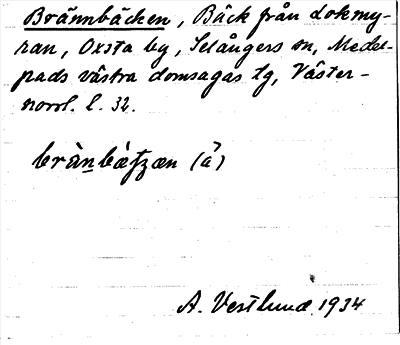 Brännbäcken, Bäck från Lokmy-
ran, Oxsta by, Selångers sn, Medel-
pads västra domsagas tg, Väster-
norrl. l. 32.
brànbæ̀ʈʂæn (ȧ)
A. Vestlund 1934